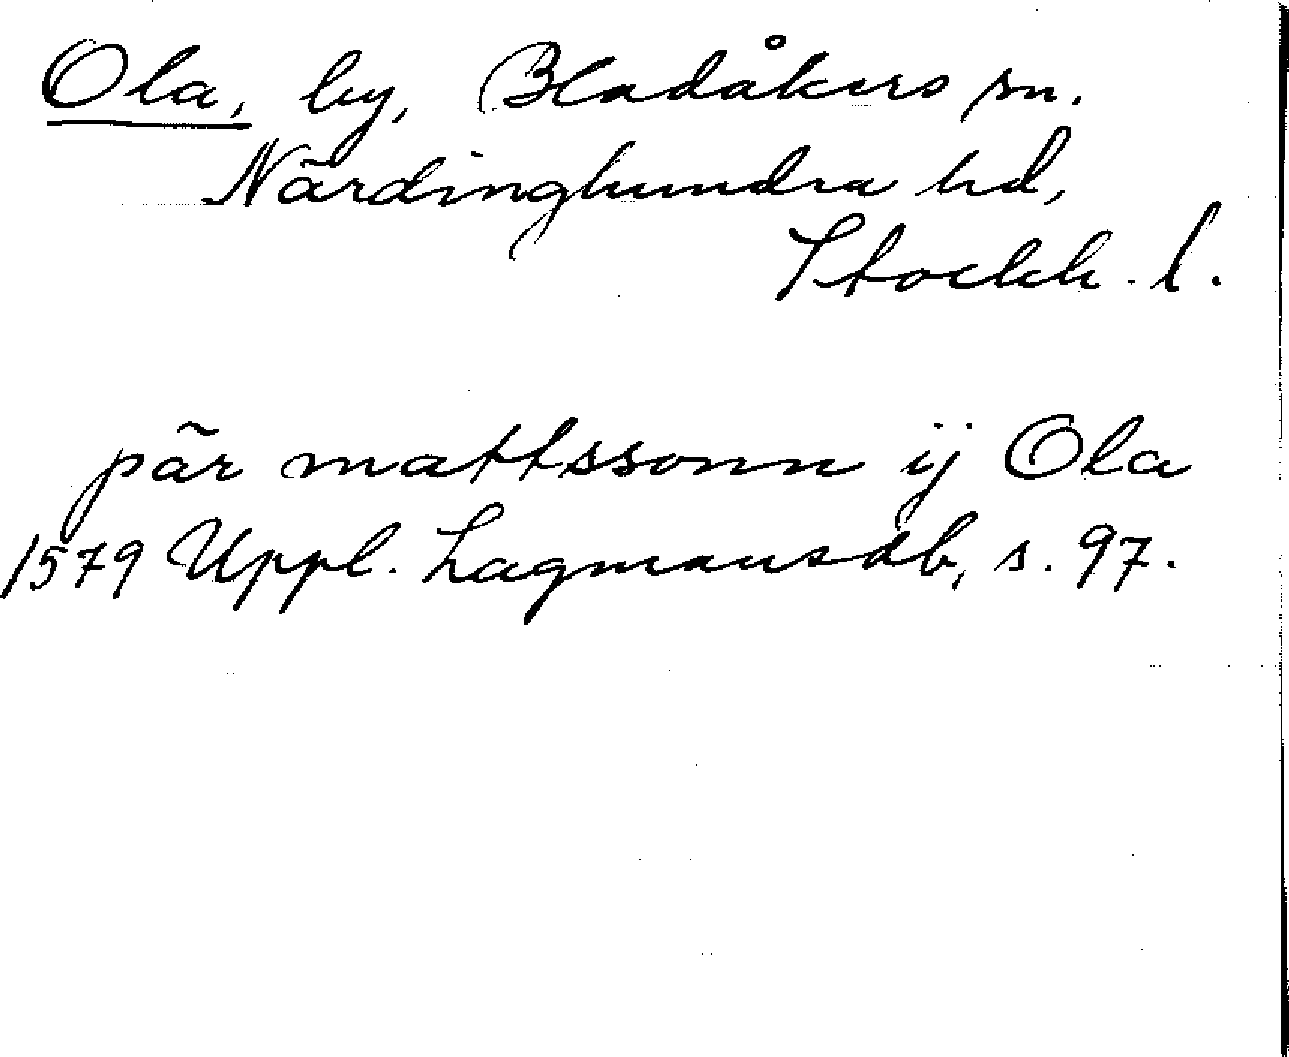 Ola, by, Bladåkers sn.
Närdinghundra hd,
Stockh. l.
pär mattssonn ij Ola
1579 Uppl. Lagmansdb, s. 97.